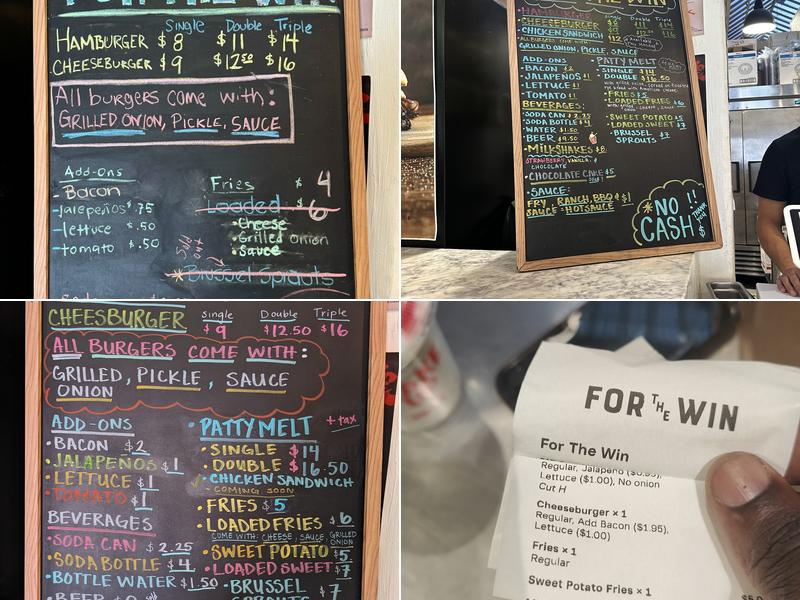 FOR THE WIN
Single Double Triple
HAMBURGER $8 $11 $14
CHEESEBURGER $9 $12.50 $16
All burgers come with:
GRILLED ONION, PICKLE, SAUCE
Add-ons
- Bacon
- Jalapeños $.75
- lettuce $.50
- tomato $.50
Fries $4
Loaded $6
• Cheese
• Grilled onion
• Sauce
Sold out
* Brussel Sprouts
THE WIN
Single Double Triple
HAMBURGER
CHEESEBURGER
CHICKEN SANDWICH $12
ALL BURGERS COME WITH:
GRILLED ONION, PICKLE, SAUCE
ADD-ONS
BACON $2
JALAPENOS $1
LETTUCE $1
TOMATO $1
BEVERAGES:
SODA CAN $2.25
SODA BOTTLE $4
WATER $1.50
BEER $9.50
MILKSHAKES $8
STRAWBERRY, VANILLA,
CHOCOLATE CAKE $5
SAUCE:
FRY, RANCH, BBQ $1
SAUCE HOTSAUCE
PATTY MELT
SINGLE $14
DOUBLE $16.50
FRIES $5
LOADED FRIES $6
SWEET POTATO $5
LOADED SWEET $7
BRUSSEL SPROUTS $7
*NO !!
CASH
THANK YOU
CHEESBURGER Single $9 Double $12.50 Triple $16
ALL BURGERS COME WITH:
GRILLED, PICKLE, SAUCE
ONION
ADD-ONS
• BACON $2
• JALAPEÑOS $1
• LETTUCE $1
• TOMATO $1
BEVERAGES
• SODA CAN $2.25
• SODA BOTTLE $4
• BOTTLE WATER $1.50
• BEER
• PATTY MELT + tax
• SINGLE $14
• DOUBLE $16.50
• CHICKEN SANDWICH
- COMING SOON
• FRIES $5
• LOADED FRIES $6
COME WITH: CHEESE, SAUCE GRILLED ONION
• SWEET POTATO $5
• LOADED SWEET $7
• BRUSSEL $7
SPROUTS
FOR THE WIN
For The Win
Regular, Jalapeno ($0.95),
Lettuce ($1.00), No onion
Cut H
Cheeseburger × 1
Regular, Add Bacon ($1.95),
Lettuce ($1.00)
Fries × 1
Regular
Sweet Potato Fries × 1